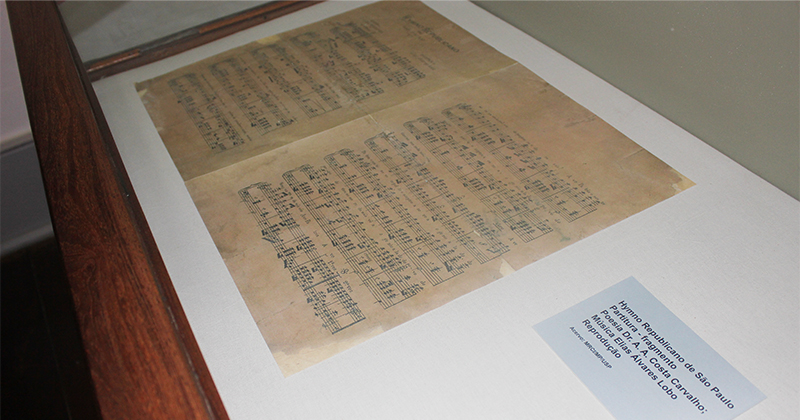 Hymno Republicano
Hymno Republicano de São Paulo
Partitura - fragmento
Poesia Dr. A. A. Costa Carvalho;
Música Elias Álvares Lobo
Reprodução
Acervo: MRCI/MP/USP